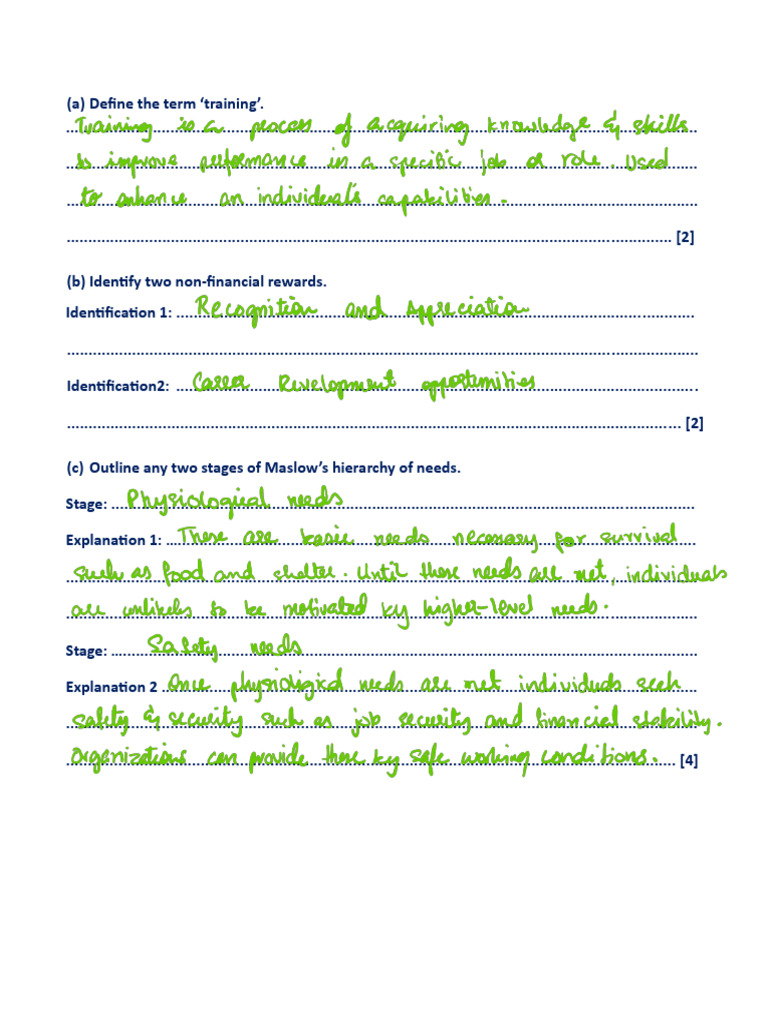 (a) Define the term ‘training’.
Training is a process of acquiring knowledge & skills
to improve performance in a specific job or role. Used
to enhance an individual's capabilities.
[2]
(b) Identify two non-financial rewards.
Identification 1: Recognition and Appreciation
Identification2: Career Development opportunities
[2]
(c) Outline any two stages of Maslow’s hierarchy of needs.
Stage: Physiological needs
Explanation 1: These are basic needs necessary for survival
such as food and shelter. Until these needs are met, individuals
are unlikely to be motivated by higher-level needs.
Stage: Safety needs
Explanation 2 Once physiological needs are met individuals seek
safety & security such as job security and financial stability.
Organizations can provide these by safe working conditions. [4]